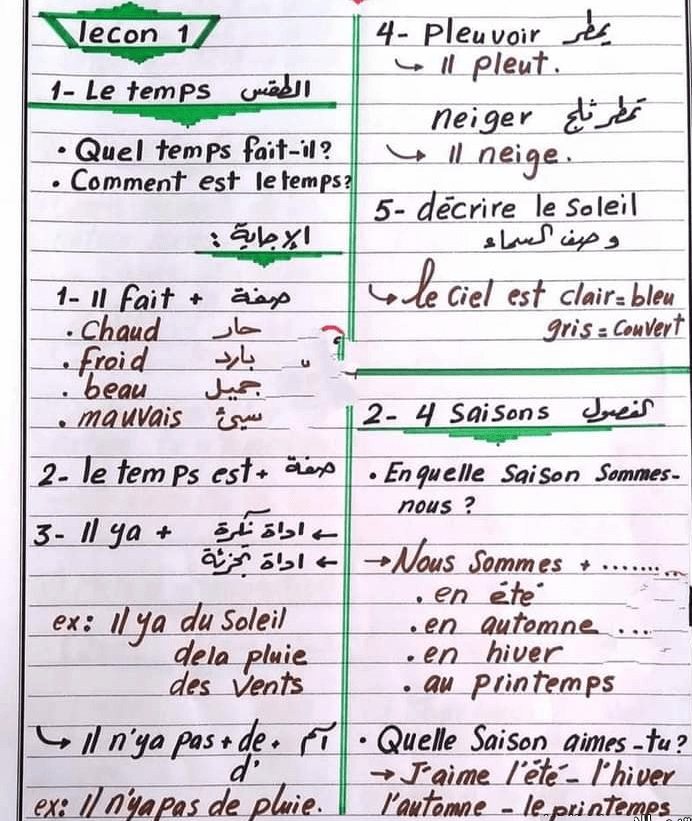 lecon 1
1- Le temps الطقس
• Quel temps fait-il?
• Comment est le temps?
الإجابة :
1- Il fait + صفة
• Chaud حار
• froid بارد
• beau جميل
• mauvais سيئ
2- le temps est + صفة
3- Il ya + ← اداة نكرة
← اداة تجزئة
ex: Il ya du Soleil
dela pluie
des Vents
↳ Il n'ya pas + de +
d'
ex: Il n'ya pas de pluie.
4- Pleuvoir يمطر
↳ Il pleut.
neiger تمطر ثلج
↳ Il neige.
5- décrire le Soleil
وصف السماء
↳ le ciel est clair = bleu
gris = Couvert
2- 4 Saisons الفصول
• En quelle Saison Sommes-
nous ?
→ Nous Sommes + ........
• en été
• en automne ...
• en hiver
• au printemps
• Quelle Saison aimes-tu?
→ J'aime l'été - l'hiver
l'automne - le printemps